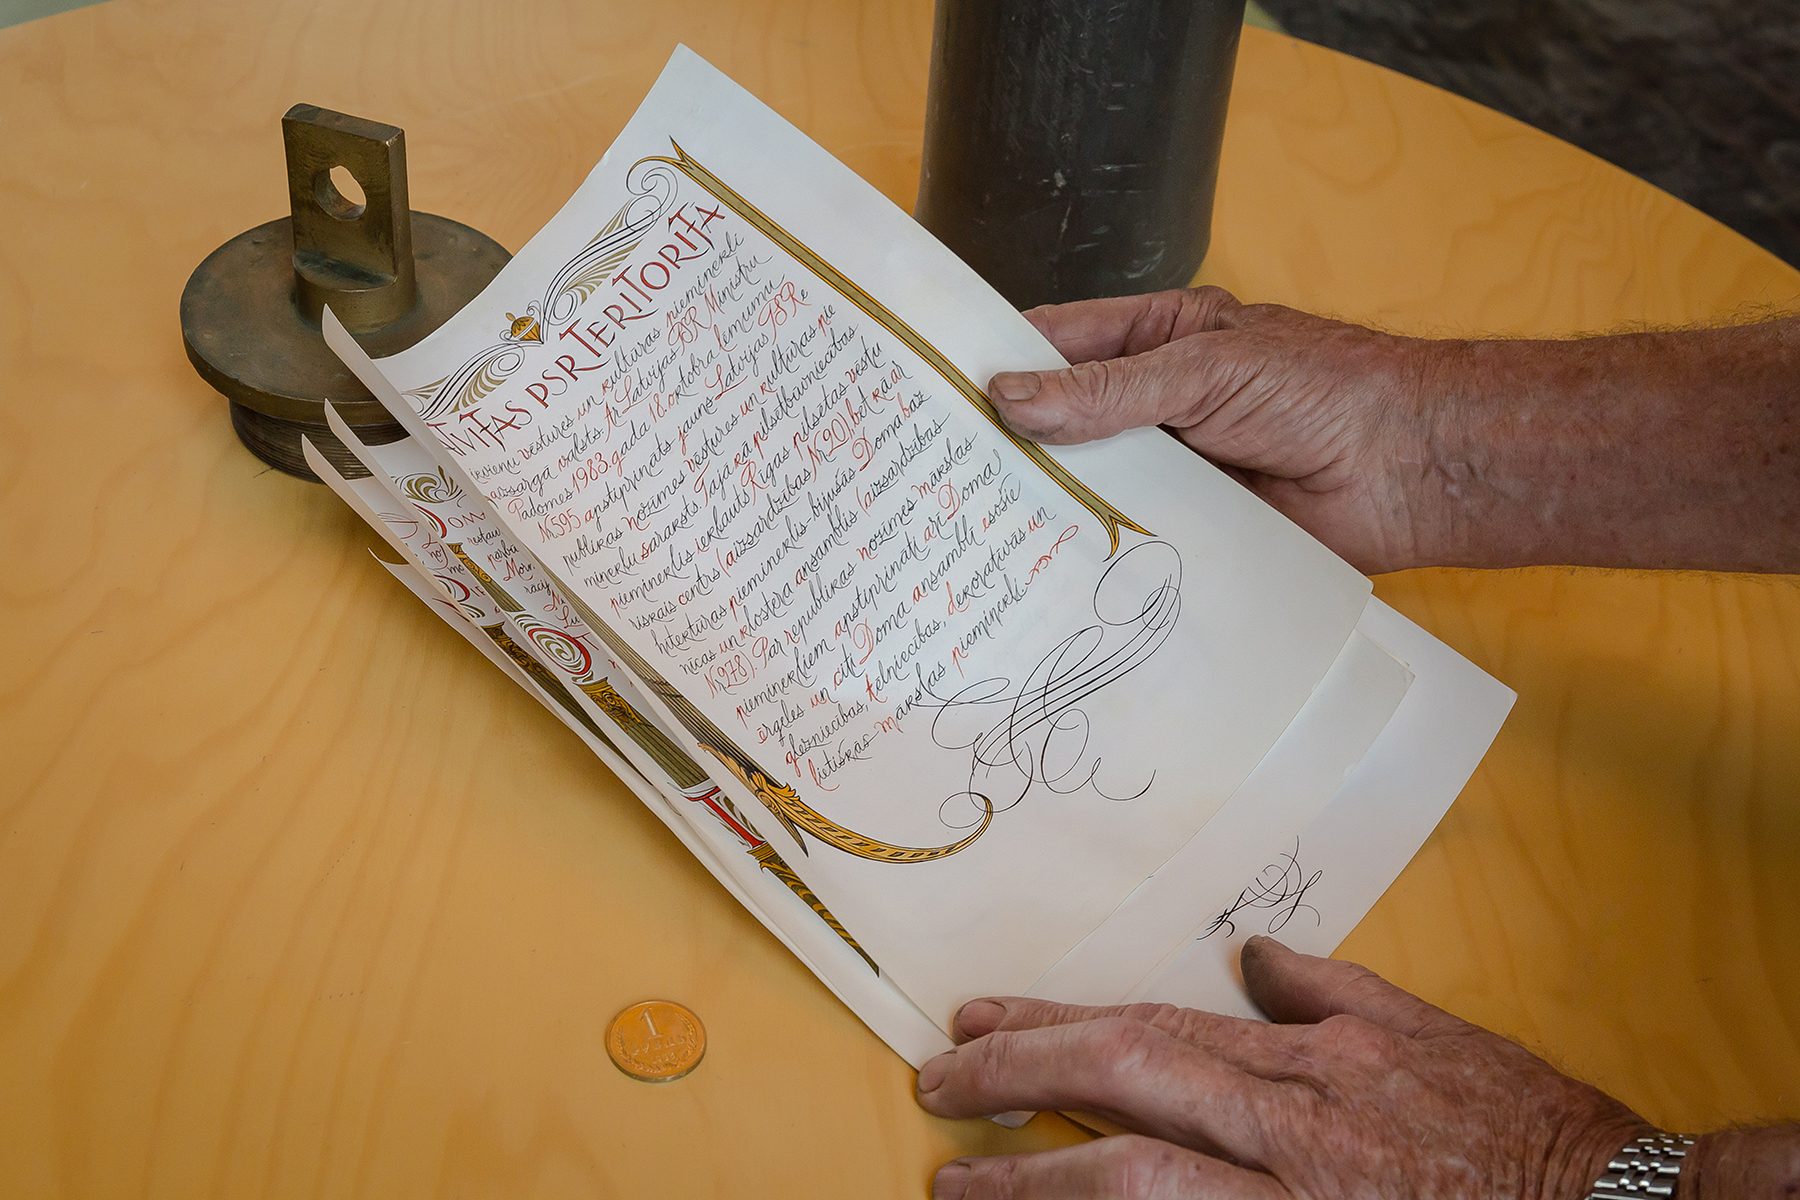 TVIJAS PSR TERITORIJA
ikvienu vēstures un kultūras pieminekli
aizsargā valsts. Ar Latvijas PSR Ministru
Padomes 1983. gada 18. oktobra lēmumu
Nr.595 apstiprināts jauns Latvijas PSR re
publikas nozīmes vēstures un kultūras pie
minekļu saraksts. Tajā kā pilsētbūvniecības
piemineklis iekļauts Rīgas pilsētas vēstu
riskais centrs (aizsardzības Nr 20), bet kā ar
hitektūras piemineklis - bijušās Doma baz
nīcas un klostera ansamblis (aizsardzības
Nr 278). Par republikas nozīmes mākslas
pieminekļiem apstiprināti arī Doma
ērģeles un citi Doma ansamblī esošie
glezniecības, tēlniecības, dekoratīvās un
lietišķās mākslas pieminekļi.
1